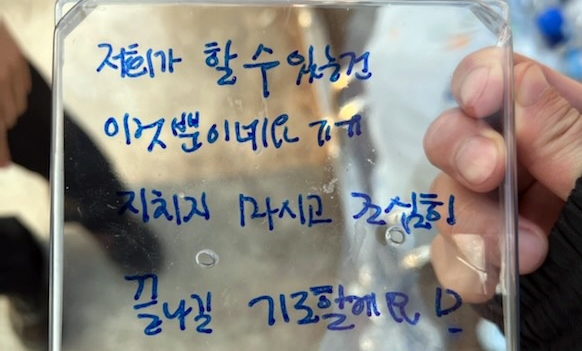 저희가 할 수 있는건
이것뿐이네요 ㅠㅠ
지치지 마시고 조심히
끝나길 기도할게요